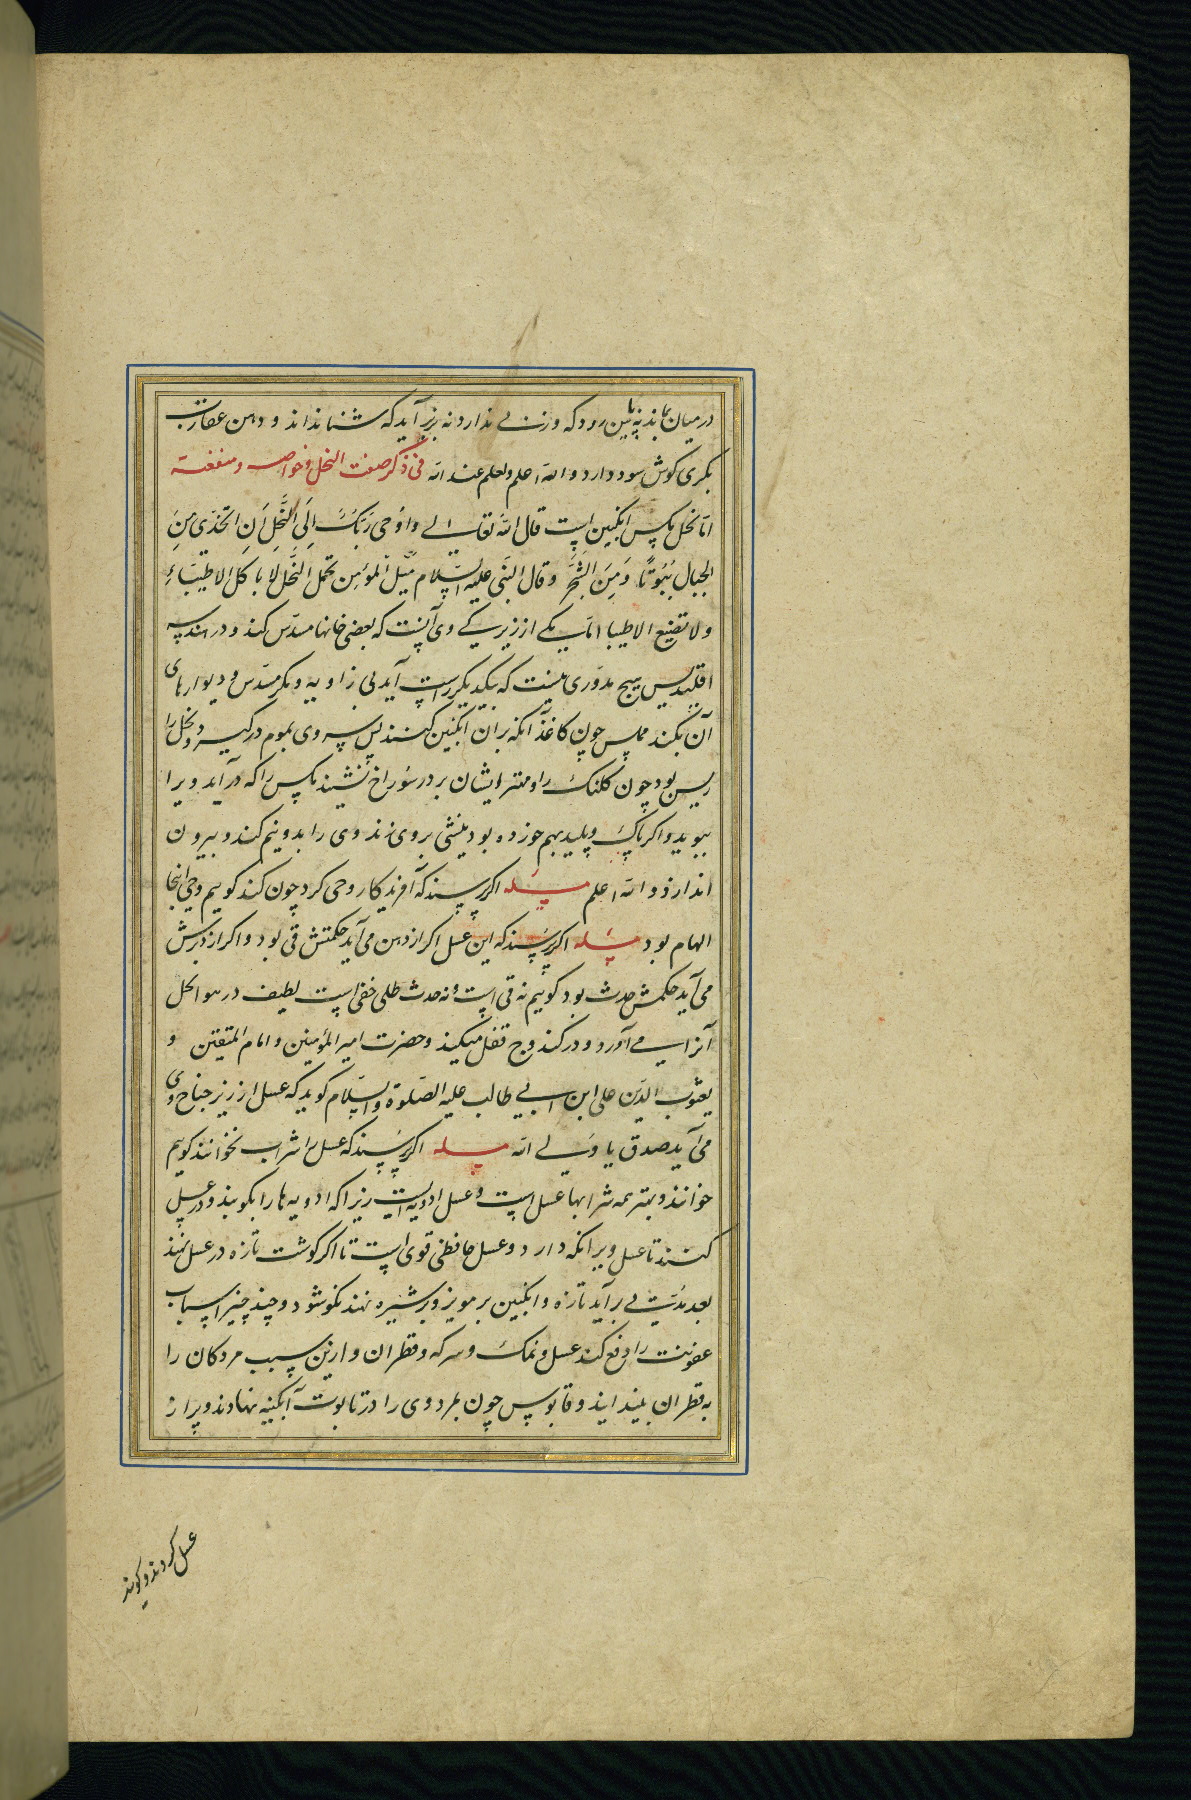 در میان بماند نه پایین رود که وزنے ندارد نه بزبر آید که شنا نداند و دهن عقارب
بکری کوش سود دارد والله اعلم والعلم عند الله فی ذکر صفت النحل و خواصه و منفعته
امّا نحل مکس انکبین است قال الله تعالے واوحی ربّک اِلَی النَّحْلِ اَنِ اتَّخِذی مِنَ
الجبال بُیُوتًا وَمِنَ الشَّجَرِ وقال النّبی علیه السّلام مثل المؤمِن کمثل النّحل لا یاکل الا طیّبا
ولا تضع الا طیبا امّا یکے از زیرکے وی آنست که بعضی خانها مسدّس کند و در هندسه
اقلیدس هیچ مدوّری نیست که بیکدیکر راست آید بی زاویه مکر مسدّس و دیوارهای
آن بکند مماس چون کاغذ آنکه بران انکبین کنند پس سر وی بموم درکیرد و نحل را
رییس بود چون کلنک را و مهتر ایشان بر در سوراخ نشیند مکس را که درآید ویرا
ببوید واکر ناپاک و پلید بهم خورده بود نیشی بر وی زند وی را بدو نیم کند و بیرون
اندازد والله اعلم مسٔله اکر پرسند که آفریدکار وحی کرد چون کند کوییم وحی اینجا
الهام بود مسٔله اکر پرسند که این عسل اکر از دهن می آید حکمتش قی بود واکر از دبرش
می آید حکمش حدث بود کوییم نه قی است و نه حدث طلی خفی است لطیف در هوا نحل
آنرا مے آورد و در کندوج نقل میکند و حضرت امیر المؤمنین و امام المتقین و
یعسوب الدّین علی ابن ابے طالب علیه الصّلوة والسّلام کوید که عسل از زیر جناح وی
می آید صدق یا ولے الله مسٔله اکر پرسند که عسل را شراب نخوانند کوییم
خوانند و بهتر همه شرابها عسل است و عسل ادویه است زیرا که ادویه ها را بکوبند و در عسل
کنند تا عسل ویرا نکه دارد و عسل حافظی قوی است تا اکر کوشت تازه در عسل نهند
بعد مدّتے برآید تازه و انکبین بر مویز و بر شیره نهند نکو شود و چند چیز اسباب
عفونت را دفع کند عسل و نمک و سرکه و قطران و از این سبب مردکان را
به قطران بیندایند و قابوس چون بمرد وی را در تابوت آبکینه نهادند و پر از
عسل کردند و کویند